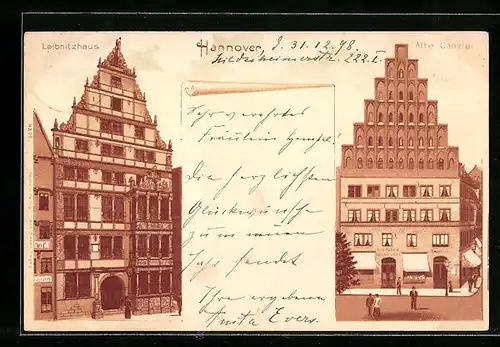 Leibnitzhaus
Hannover, d. 31.12.98.
Hildesheimerstr. 222.I.
Alte Canzlei
Sehr verehrtes
Fräulein Hempel!
Die herzlichsten
Glückwünsche
zum neuen
Jahr sendet
Ihre ergebene
Anita Evers.